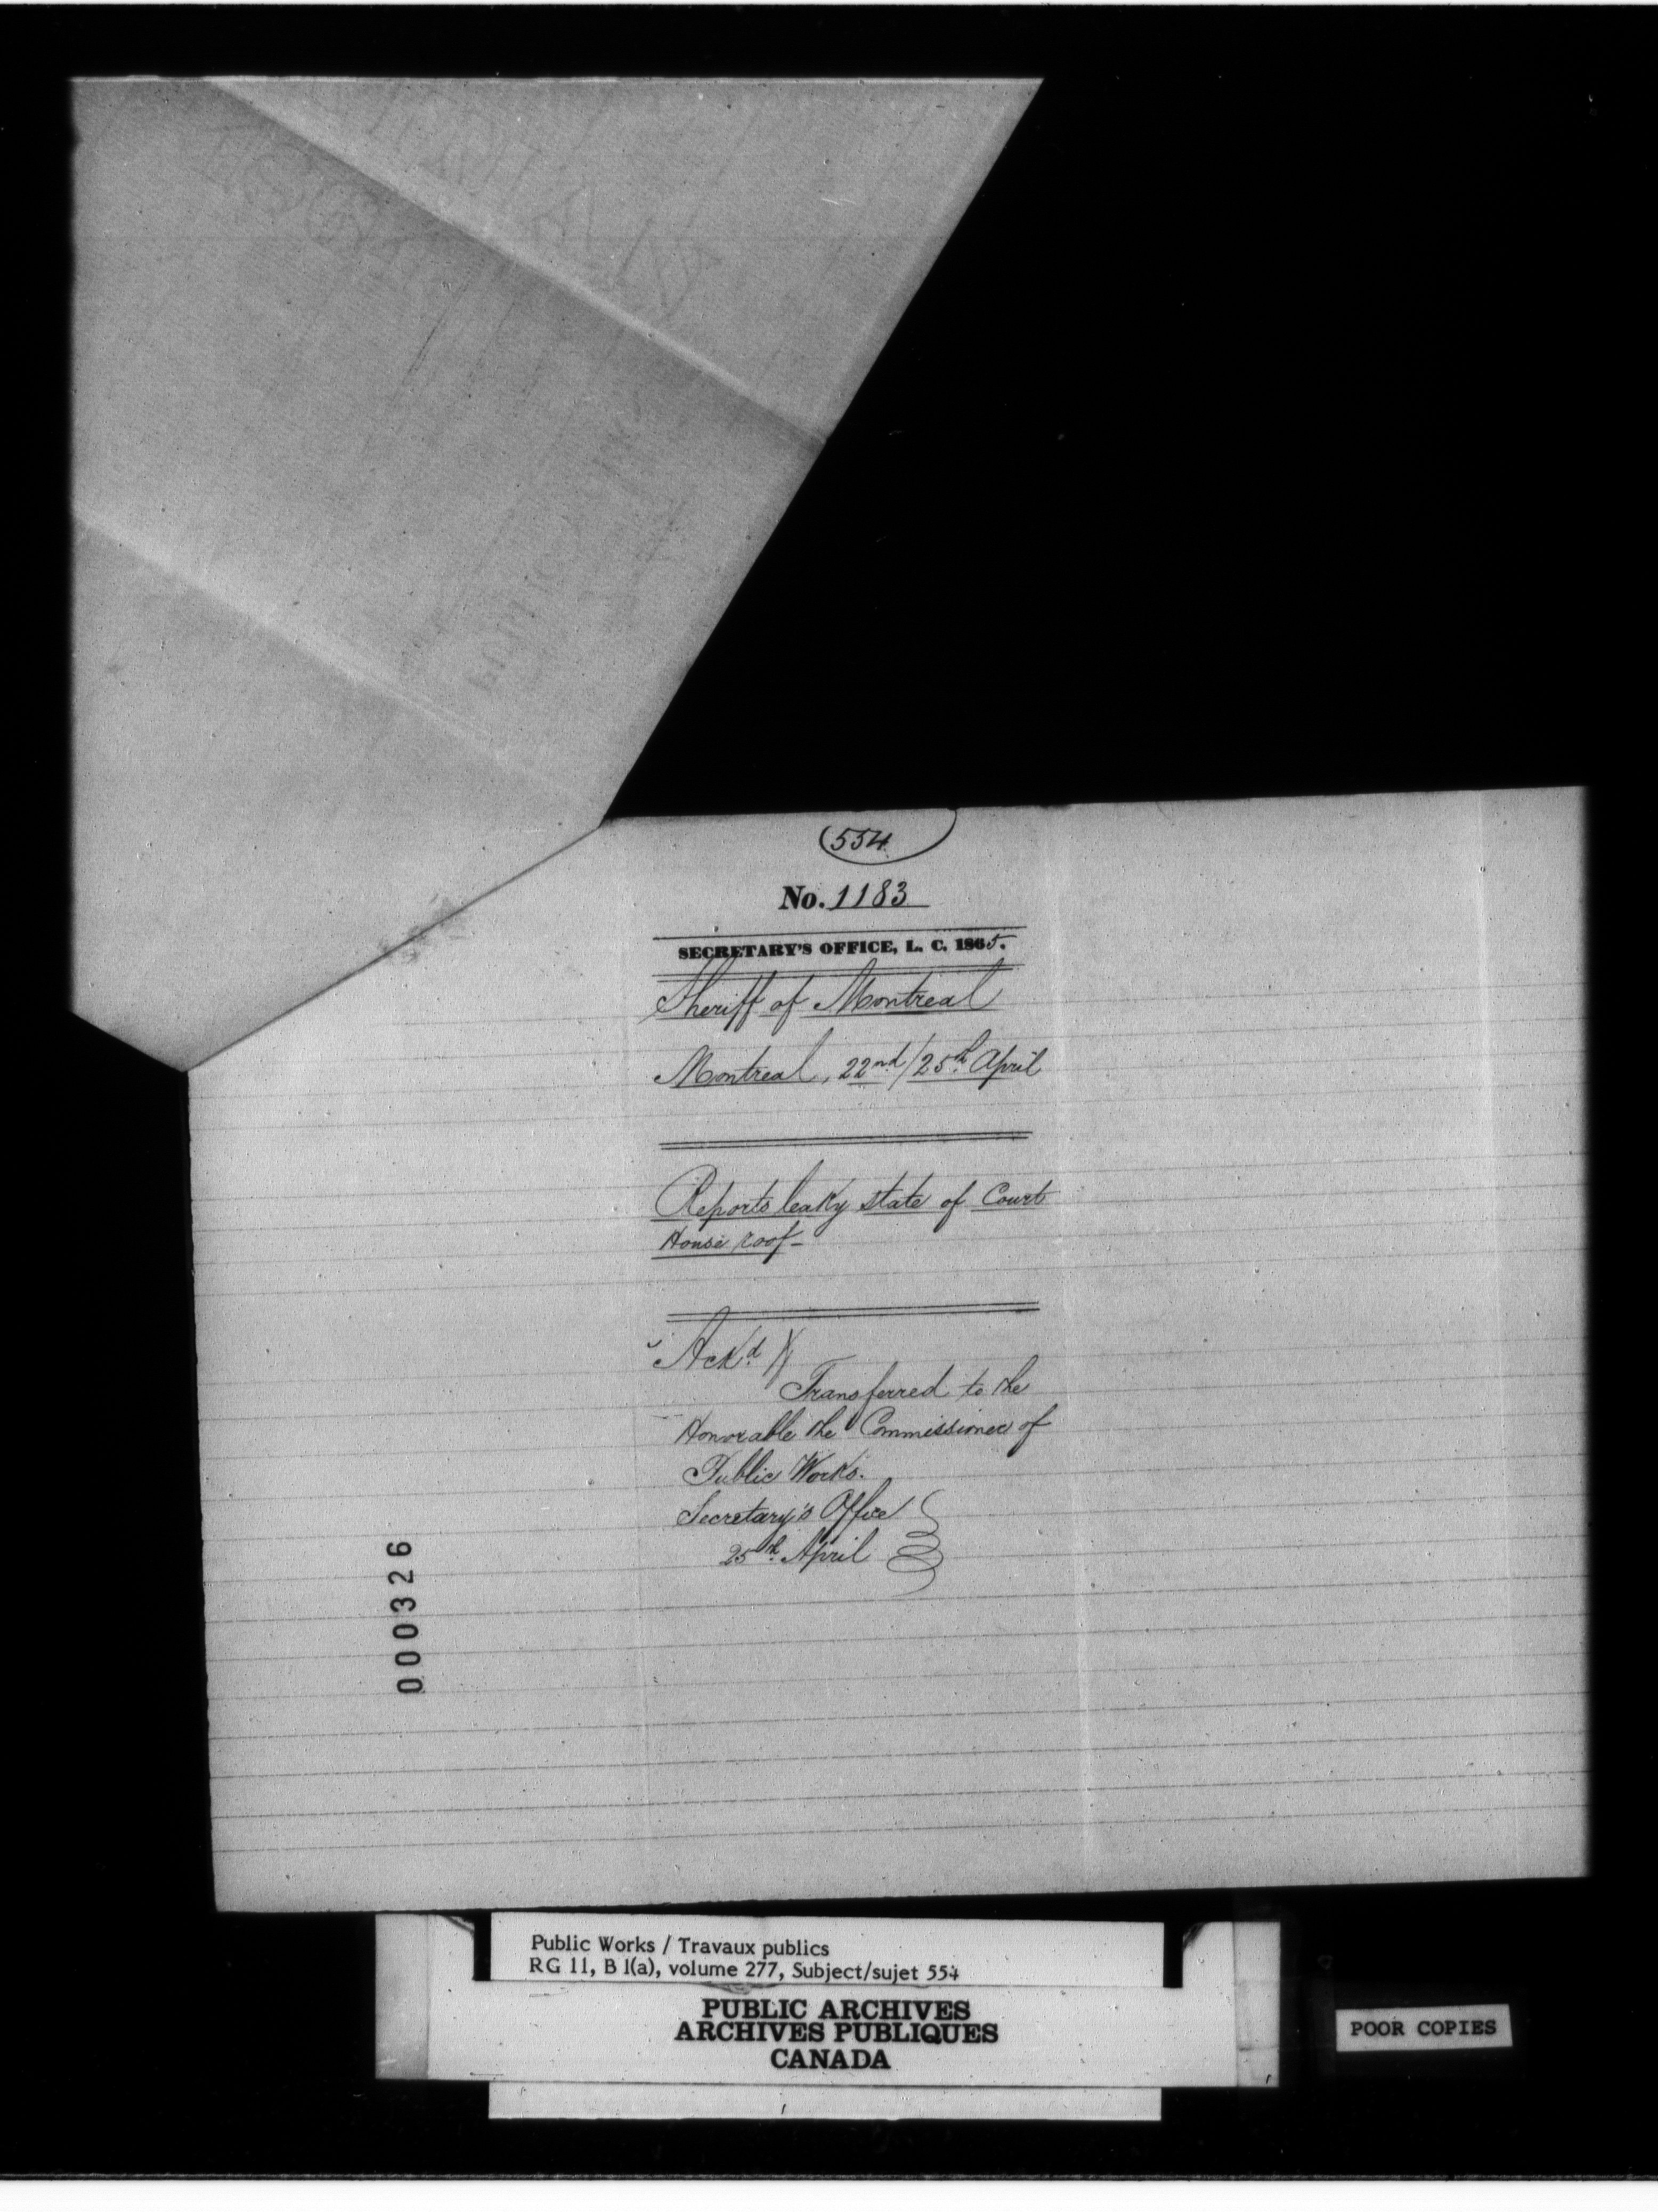 554
No. 1183
SECRETARY'S OFFICE, L. C. 1865.
Sheriff of Montreal
Montreal, 22nd/25th April
Reports leaky state of Court
House roof-
Ack'd
Transferred to the
Honorable the Commissioner of
Public Works.
Secretary's Office
25th April
000326
Public Works / Travaux publics
RG 11, B 1(a), volume 277, Subject/sujet 554
PUBLIC ARCHIVES
ARCHIVES PUBLIQUES
CANADA
POOR COPIES